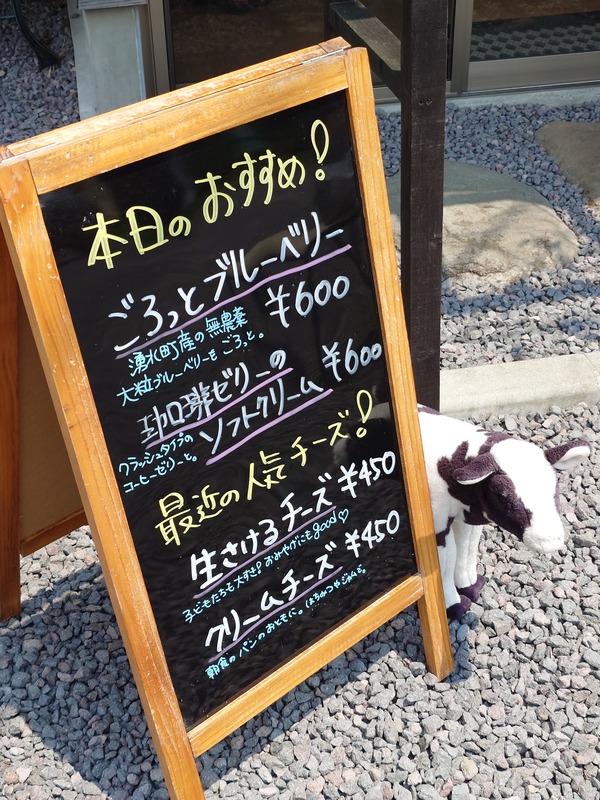 本日のおすすめ!
ごろっとブルーベリー
¥600
湧水町産の無農薬
大粒ブルーベリーも ごろっと。
珈琲ゼリーの
ソフトクリーム ¥600
クラッシュタイプの
コーヒーゼリーと。
最近の人気チーズ!
生さけるチーズ ¥450
子どもたちも大すき♪おみやげにもgood♡
クリームチーズ ¥450
朝食のパンのおともに。はちみつやジャムも。